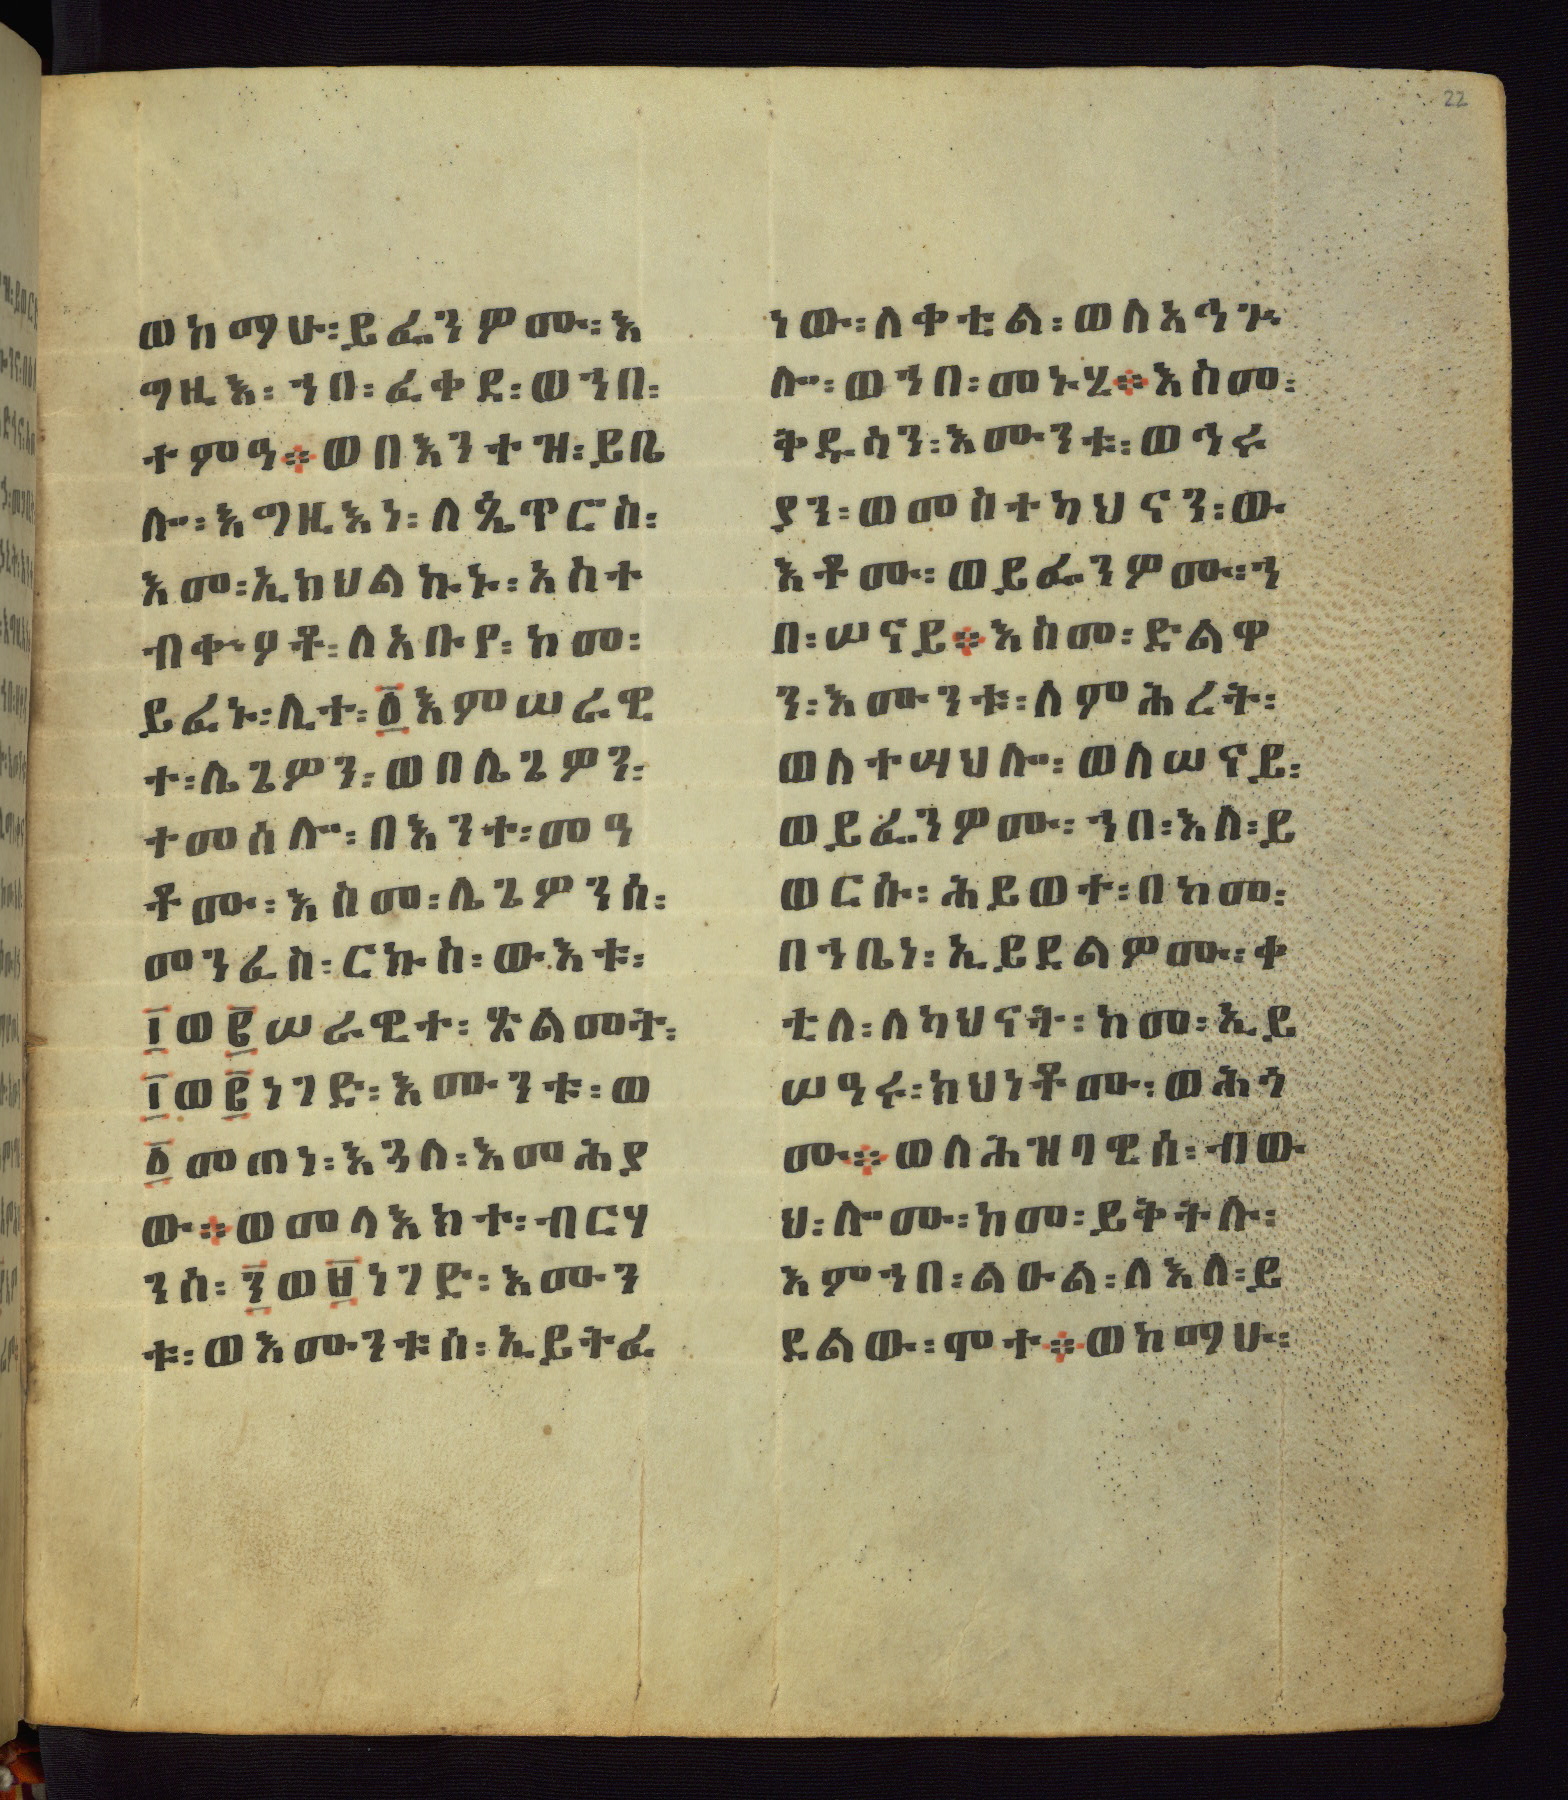 22
ወከማሁ፡ይፌንዎሙ፡እ
ግዚእ፡ኀበ፡ፈቀደ፡ወኀበ፡
ተምዓ፨ወበእንተዝ፡ይቤ
ሎ፡እግዚእነ፡ለጴጥሮስ፡
እመ፡ኢከህልኩኑ፡አስተ
ብቍዖቶ፡ለአቡየ፡ከመ፡
ይፈኑ፡ሊተ፡፩እምሠራዊ
ተ፡ሌጌዎን፡ወበሌጌዎን፡
ተመሰሎ፡በእንተ፡መዓ
ቶሙ፡እስመ፡ሌጌዎንሰ፡
መንፈስ፡ርኩስ፡ውእቱ፡
፲ወ፪ሠራዊተ፡ጽልመት፡
፲ወ፪ነገድ፡እሙንቱ፡ወ
፩መጠነ፡እጓለ፡እመሕያ
ው፨ወመላእክተ፡ብርሃ
ንሰ፡፶ወ፱ነገድ፡እሙን
ቱ፡ወእሙንቱሰ፡ኢይትፈ
ነው፡ለቀቲል፡ወለአዓጕ
ሎ፡ወኀበ፡መኑሂ፨እስመ፡
ቅዱሳን፡እሙንቱ፡ወኄሩ
ያን፡ወመስተካህናን፡ው
እቶሙ፡ወይፌንዎሙ፡ኀ
በ፡ሠናይ፨እስመ፡ድልዋ
ን፡እሙንቱ፡ለምሕረት፡
ወለተሣህሎ፡ወለሠናይ፡
ወይፌንዎሙ፡ኀበ፡እለ፡ይ
ወርሱ፡ሕይወተ፡በከመ፡
በኀቤነ፡ኢይደልዎሙ፡ቀ
ቲለ፡ለካህናት፡ከመ፡ኢይ
ሠዓሩ፡ክህነቶሙ፡ወሕጎ
ሙ፨ወለሕዝባዊሰ፡ብው
ህ፡ሎሙ፡ከመ፡ይቅትሉ፡
እምኀበ፡ልዑል፡ለእለ፡ይ
ደልው፡ሞተ፨ወከማሁ፡